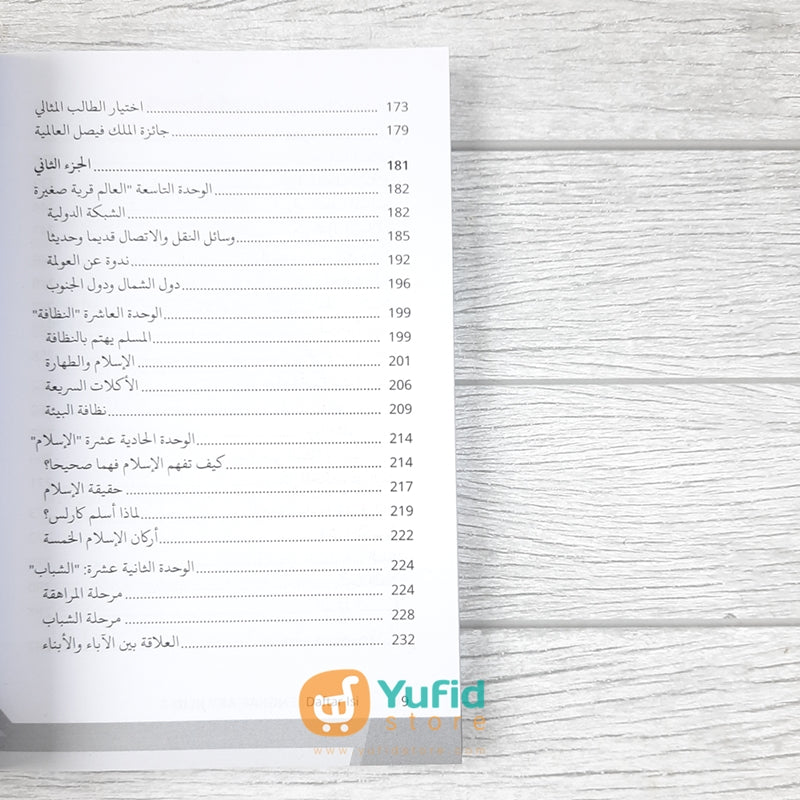 اختيار الطالب المثالي 173
جائزة الملك فيصل العالمية 179
الجزء الثاني 181
الوحدة التاسعة "العالم قرية صغيرة 182
الشبكة الدولية 182
وسائل النقل والاتصال قديما وحديثا 185
ندوة عن العولمة 192
دول الشمال ودول الجنوب 196
الوحدة العاشرة "النظافة" 199
المسلم يهتم بالنظافة 199
الإسلام والطهارة 201
الأكلات السريعة 206
نظافة البيئة 209
الوحدة الحادية عشرة "الإسلام" 214
كيف تفهم الإسلام فهما صحيحا؟ 214
حقيقة الإسلام 217
لماذا أسلم كارلس؟ 219
أركان الإسلام الخمسة 222
الوحدة الثانية عشرة: "الشباب" 224
مرحلة المراهقة 224
مرحلة الشباب 228
العلاقة بين الآباء والأبناء 232
Daftar Isi 9
Yufid
store